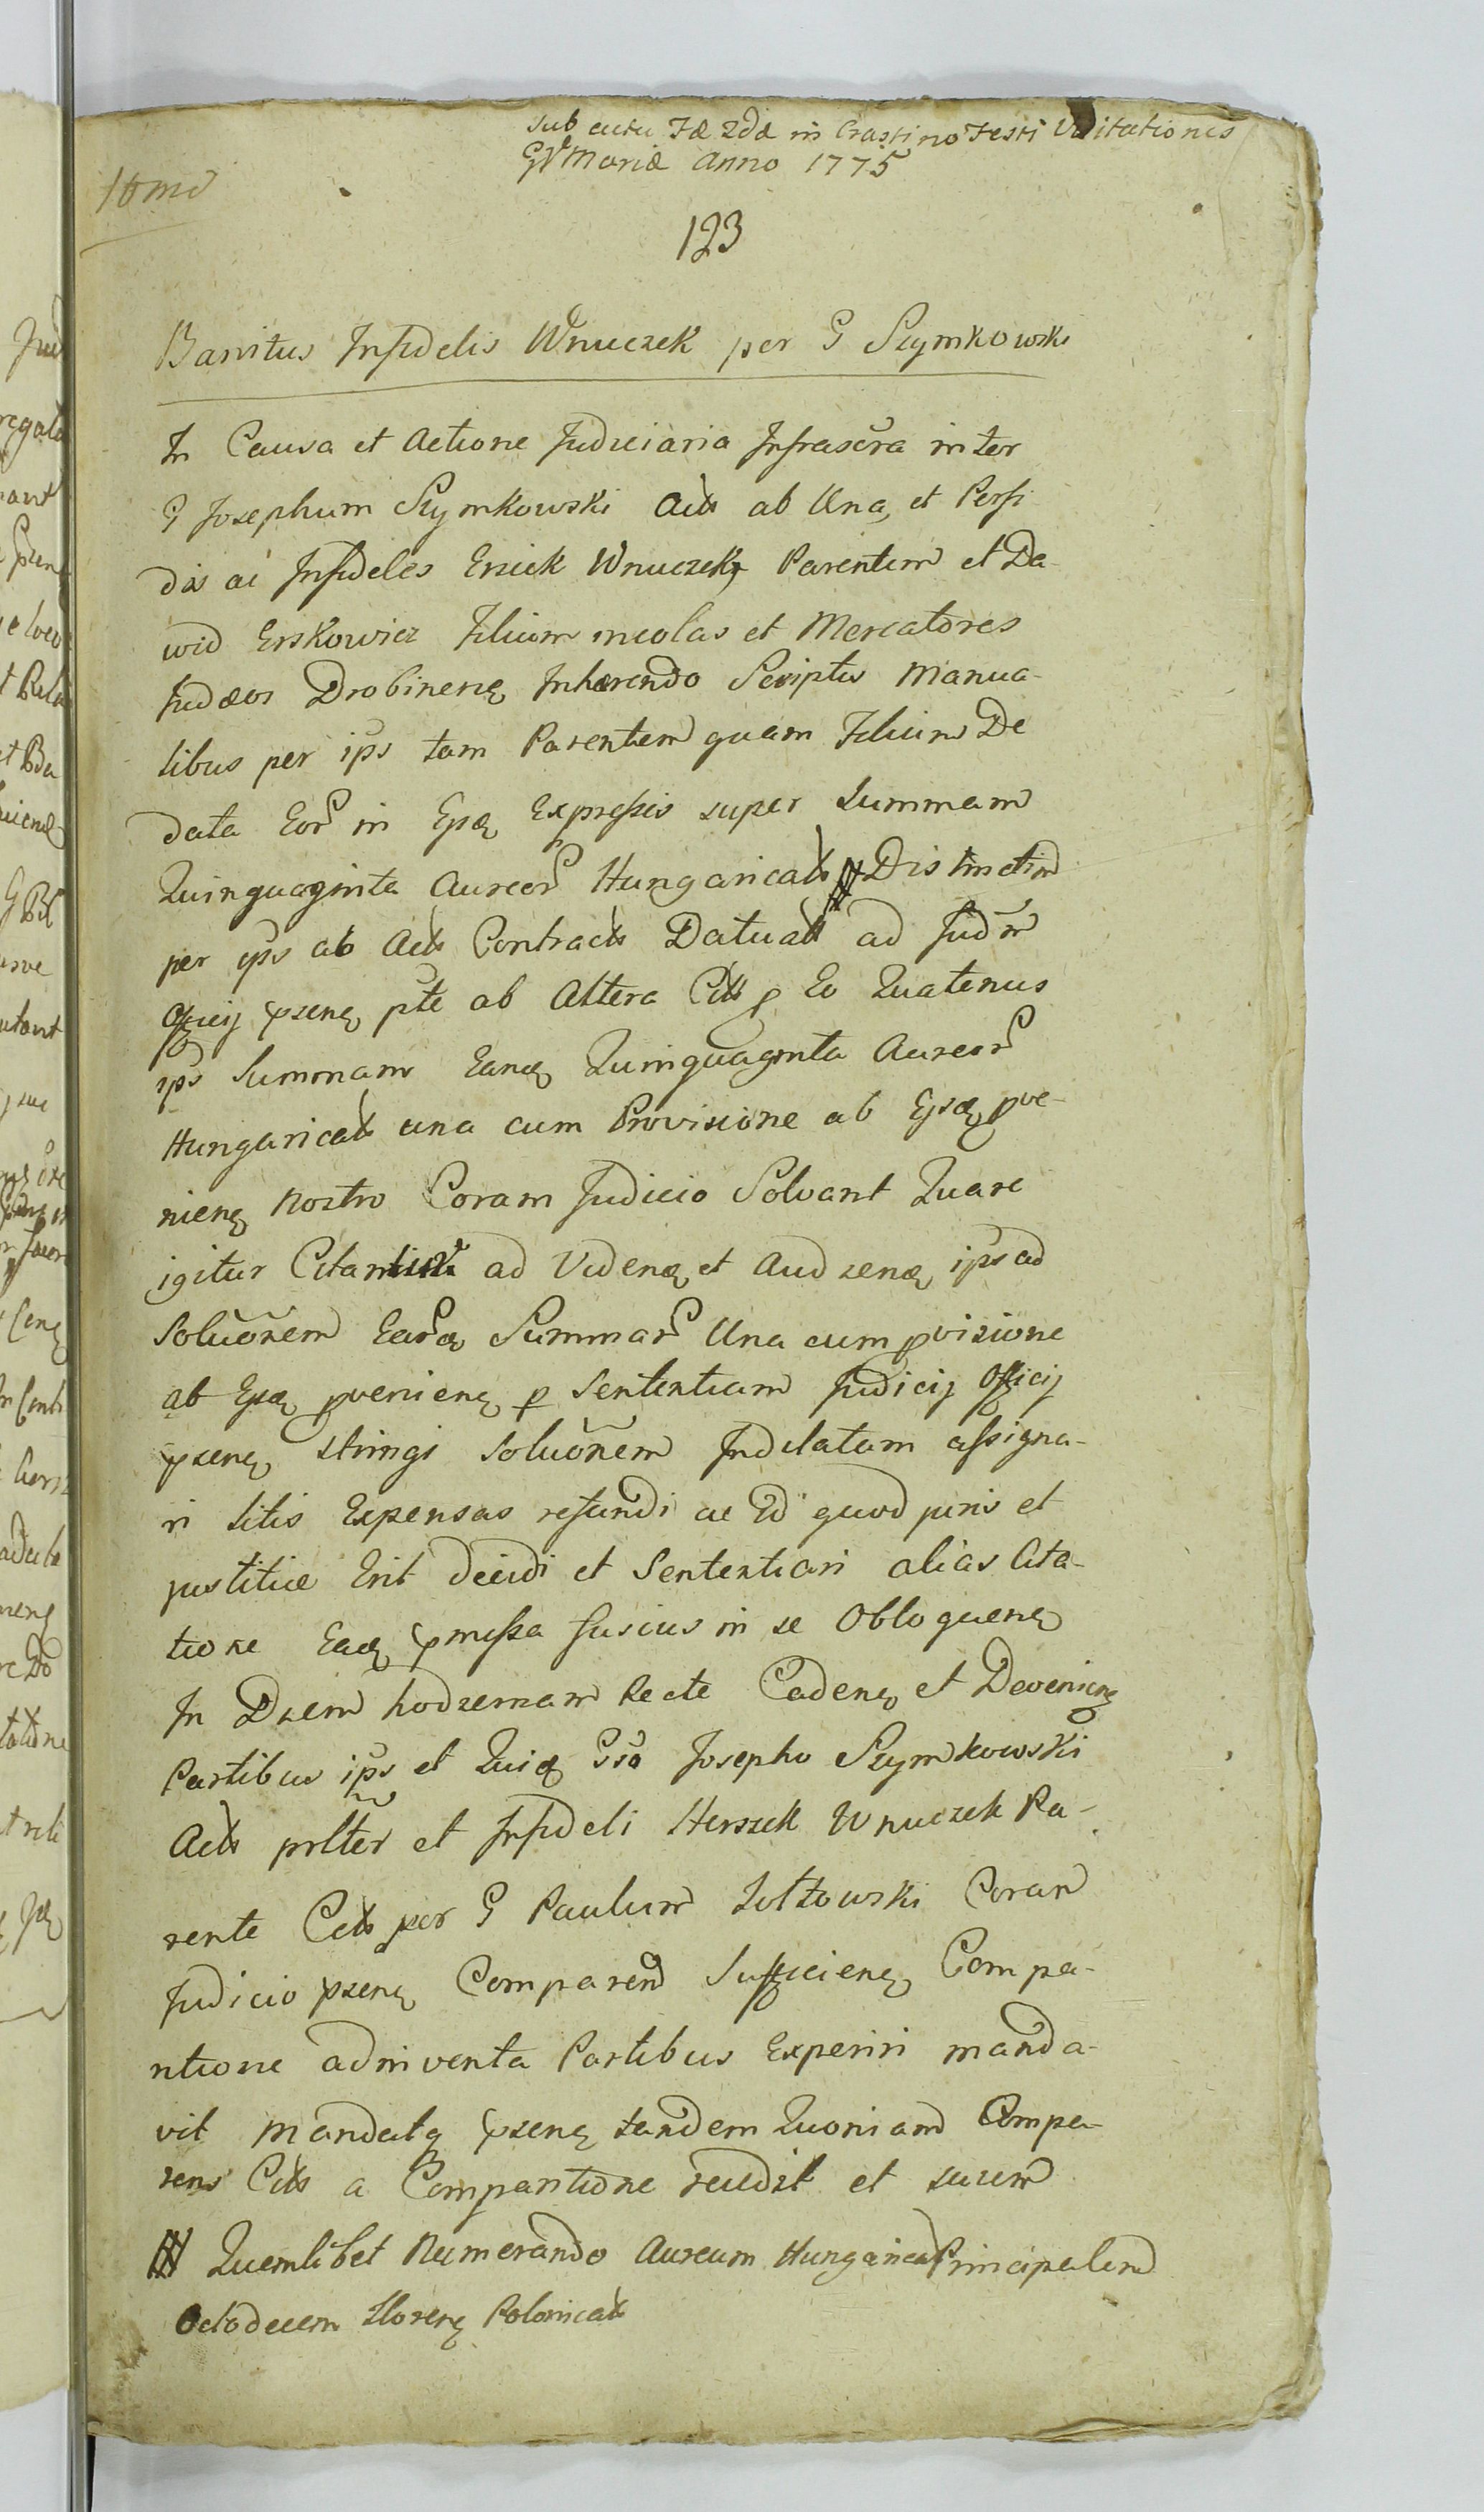 Sub actu Fæ 2dæ in Crastino Festi Visitationis
GV Mariæ Anno 1775
16mo
123
Banitus Infidelis Wnuczek per G Szymkowski
In Causa et Actione Judiciaria Infrascra inter
G Josephum Szymkowski Act ab Una, et Perfi
dos ac Infideles Erszek Wnuczek Parentem et Da-
wid Erszkowicz Filium incolas et Mercatores
Judæos Drobinenę Inhærendo Scriptis Manua-
libus per ips tam Parentem quam Filium De
data Eor in Ejsdę Expressis super Summam
Quinquaginta Aureor Hungaricalt # Distinctim
per ips ab Act Contract Datualt ad Judm
Officij pzenę pte ab Altera Citt p Eo Quatenus
ips Summam Eandę Quinquaginta Aureor
Hungaricalt una cum Provisione ab Ejsdę pve-
nienę nostro Coram Judicio Solvant Quare
igitur Citantur ad Videnđ et Audzenđ ips ad
Soluõnem Earđ Summar Una cum pvisione
ab Ejsdę pvenienę p Sententiam Judicij Officij
pzenę stringi Soluõnem Indilatam assigna-
ri litis Expensas refundi ac Id quod juris et
justitiæ Erit decidi et Sententiari alias Cita-
tione Eadę pmissa fusius in se Obloquenę
In Dzem hodzernam Recte Cadenę et Devenienę
Partibus ips et Quiđ Gso Josepho Szymkowski
Act prlter et Infideli Herszek Wnuczek Pa-
rente Citt per G Paulum Zołtowski Coram
Judicio pzenę Comparenđ Sufficienę Compa-
ritione adinventa Partibus Experiri manda-
vit Mandatq pzenę tandem Quoniam Compa-
rens Citt a Comparitione recedzit et suum
# Quemlibet Numerando Aureum Hungarical Principalem
Octodecem florenę Polonicalt